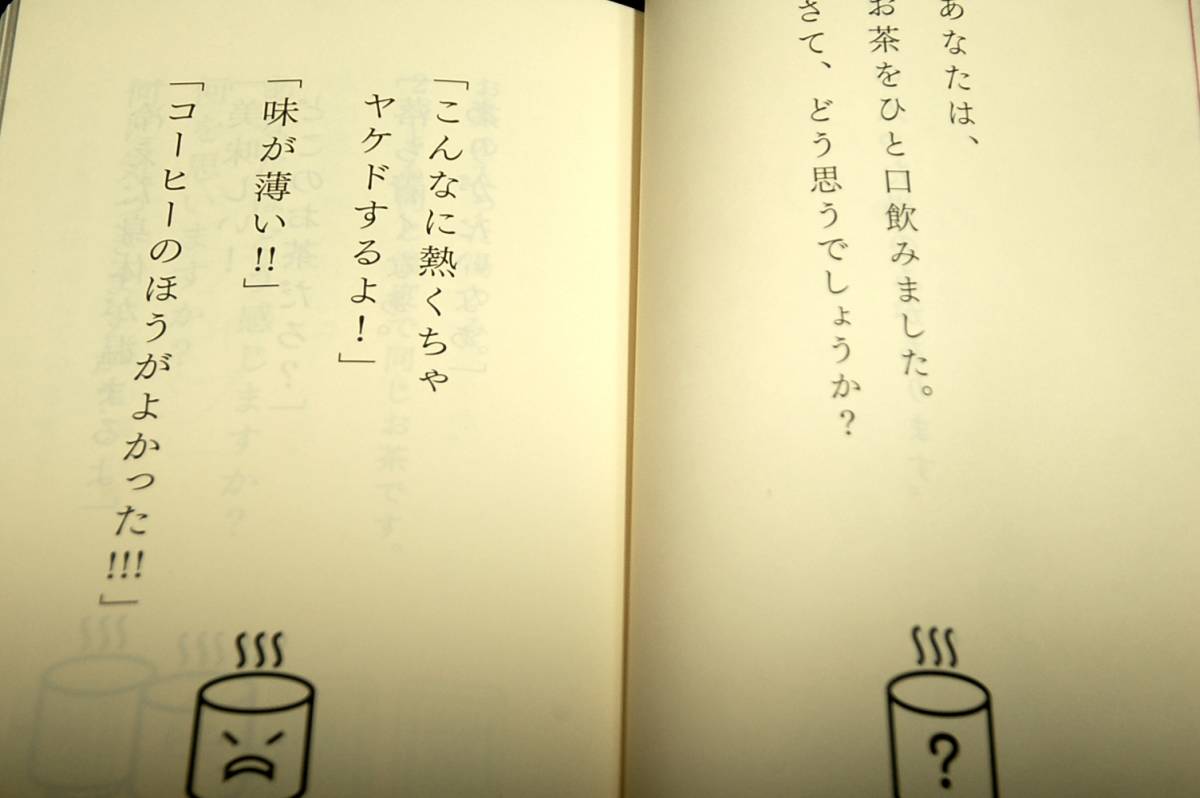 あなたは、
お茶をひと口飲みました。
さて、どう思うでしょうか？
「こんなに熱くちゃ
ヤケドするよ！」
「味が薄い!!」
「コーヒーのほうがよかった!!!」
?